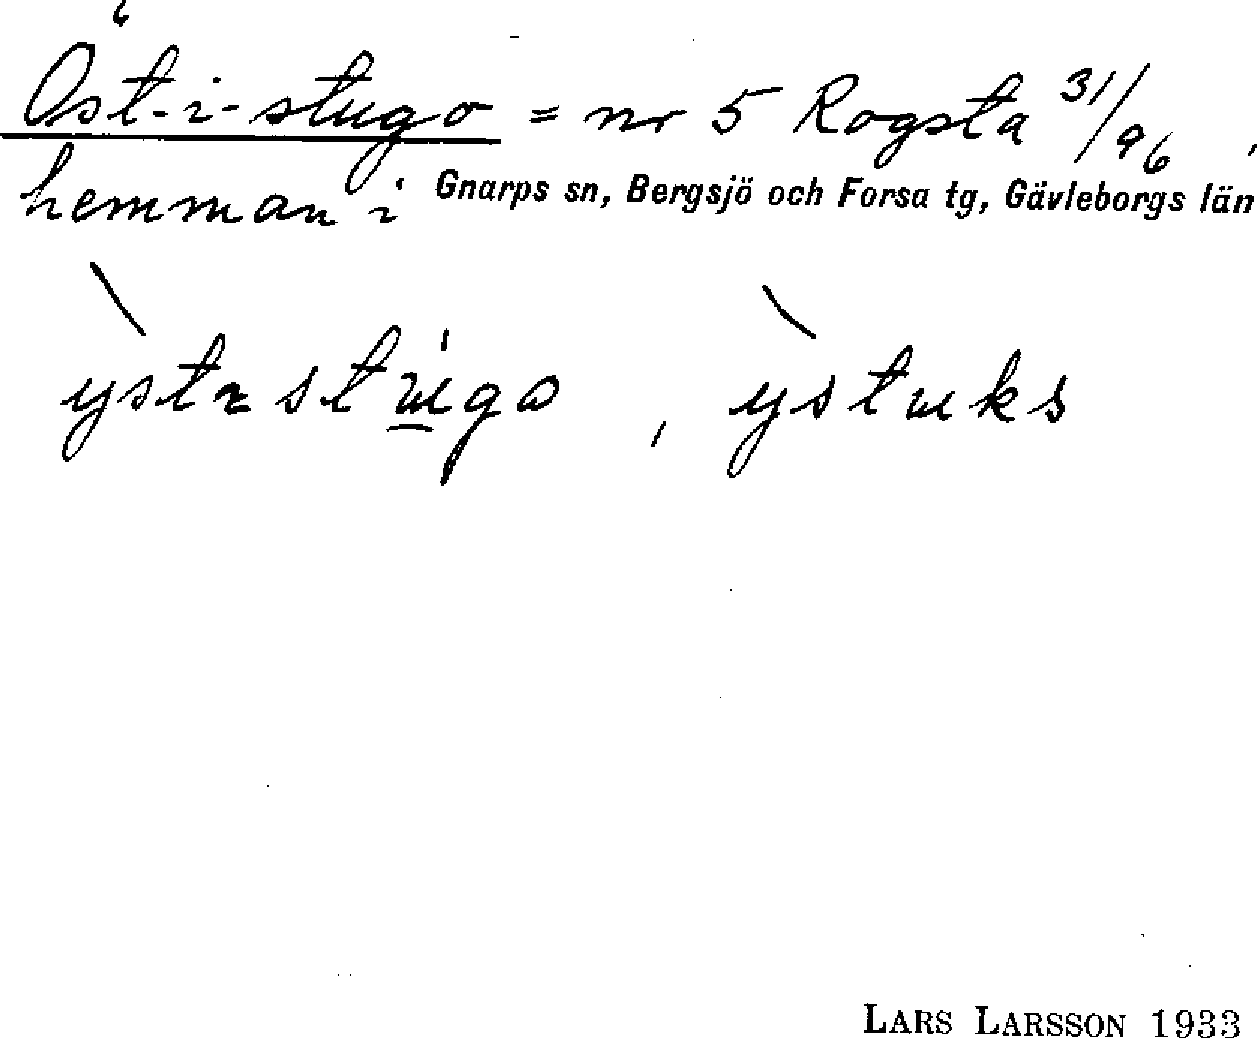 Öst-i-stugo = nr 5 Rogsta 31/96,
hemman i Gnarps sn, Bergsjö och Forsa tg, Gävleborgs län
ỳstɩstɯ́gɷ, ỳstɯks
LARS LARSSON 1933